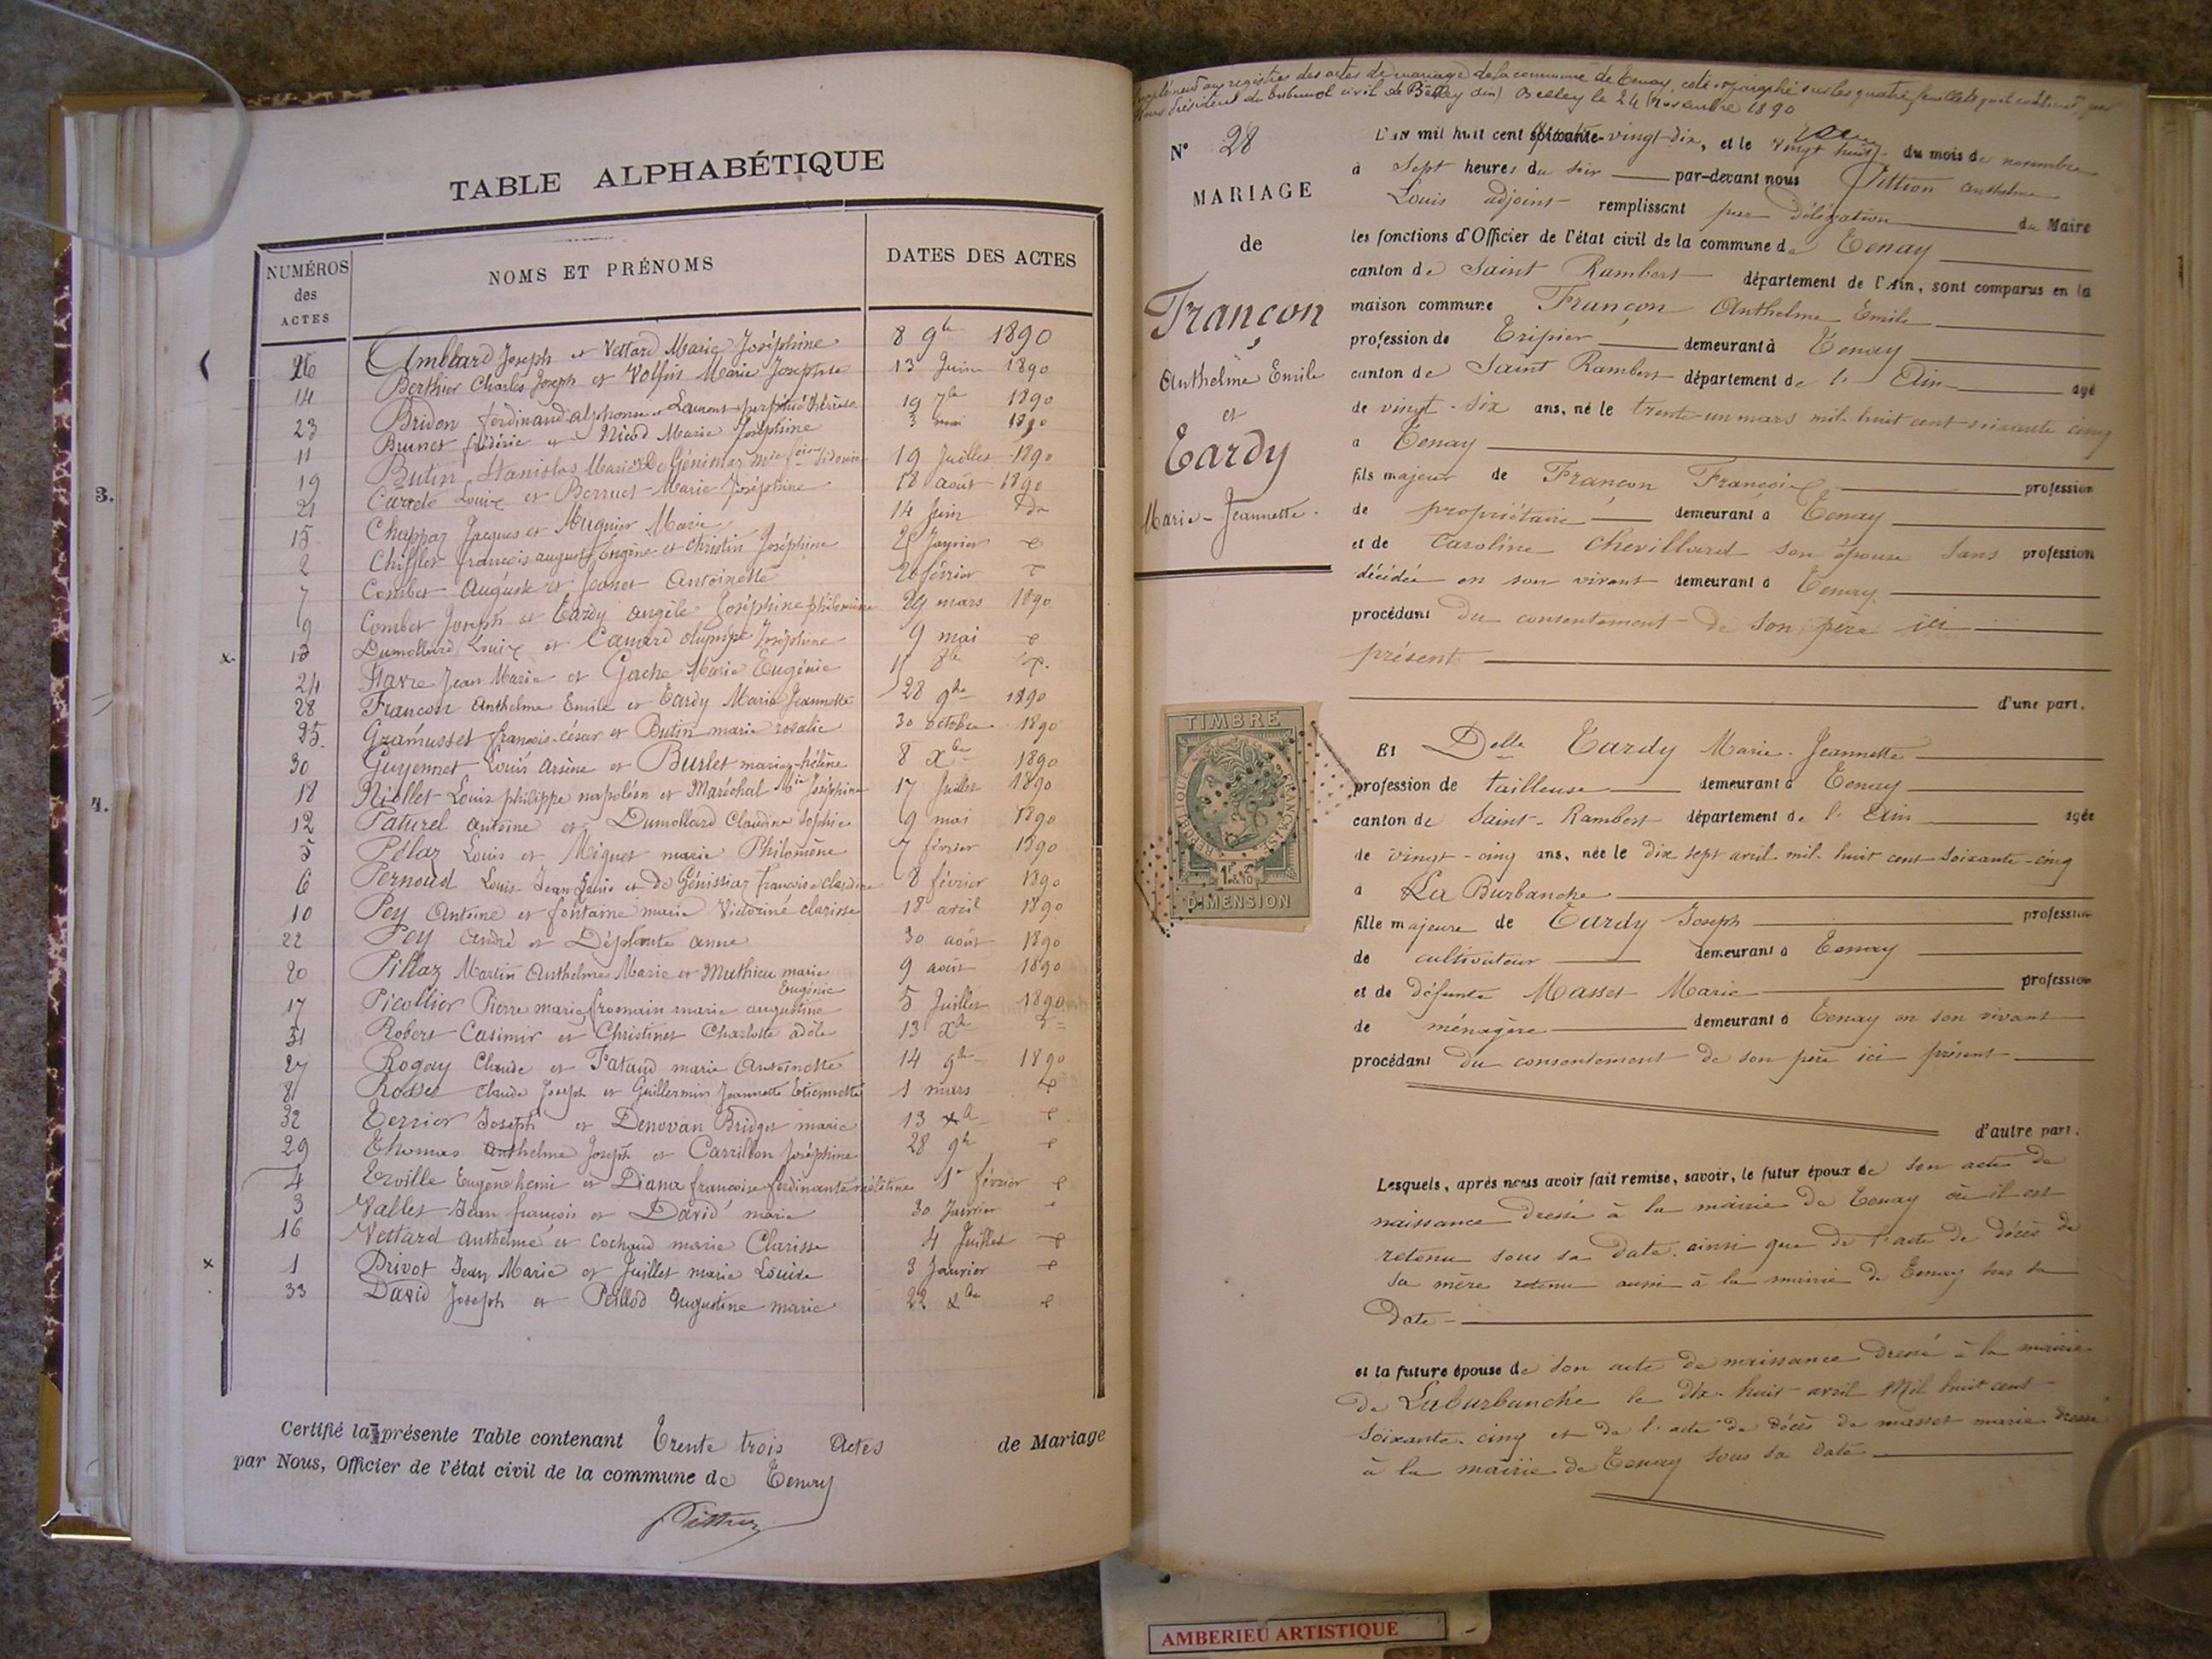 TABLE ALPHABÉTIQUE
NUMÉROS des ACTES
NOMS ET PRÉNOMS
DATES DES ACTES
26 Amblard Joseph et Vettard Marie Joséphine 8 9bre 1890
14 Berthier Charles Joseph et Volfin Marie Josephte 13 Juin 1890
23 Bridon ferdinand alphonse et Laurent Thérèse 19 7bre 1890
11 Brunet frédéric et Nicod Marie Joséphine 3 mai 1890
19 Butin Stanislas Marie et De Génissiaz Sidonie 19 Juillet 1890
21 Louis et Berruet Marie Joséphine 18 août 1890
15 Chappaz Jacques et Mugnier Marie 14 Juin do
2 Chifflet françois auguste Eugène et Christin Joséphine 25 Janvier
7 Combet Auguste et Antoinette 20 février
9 Combet Joseph et Tardy angèle Joséphine philomène 29 mars 1890
x 13 Dumollard Louis et Camard olympe Joséphine 9 mai
24 Favre Jean Marie et Gache Marie Eugénie 8bre
28 Françon Anthelme Emile et Tardy Marie Jeannette 28 9bre 1890
25 Gramusset françois césar et Butin marie rosalie 30 octobre 1890
30 Guyennet Louis Arsène et Burlet marie hélène 8 Xbre 1890
18 Niollet Louis philippe napoléon et Maréchal Mie Joséphine 17 Juillet 1890
12 Paturel antoine et Dumollard Claudine Sophie 9 mai 1890
5 Pélaz Louis et Miguet marie Philomène 7 février 1890
6 Pernoud Louis Jean et De Génissiaz françoise claudine 8 février 1890
10 Pey Antoine et fontaine marie Victorine clarisse 18 avril 1890
22 Pey André et Déplante anne 30 août 1890
20 Pillaz Martin Anthelme Marie et Mathieu marie Eugénie 9 août 1890
17 Picollier Pierre marie et romain marie augustine 5 Juillet 1890
31 Robert Casimir et Christinet Charlotte adèle 13 Xbre
27 Rogay Claude et Pataud marie Antoinette 14 9bre 1890
8 Rosset claude Joseph et Guillermin Jeannette Etiennette 1 mars
32 Terrier Joseph et Denovan Bridget marie 13 Xbre
29 Thomas anthelme Joseph et Carrillon Joséphine 28 9bre
4 Troille Eugène henri et Diana françoise ferdinante 1er février
3 Vallet Jean françois et David marie 30 Janvier
16 Vettard anthelme et Cochaud marie Clarisse 4 Juillet
x 1 Privot Jean Marie et Juillet marie Louise 3 Janvier
33 David Joseph et Peillod augustine marie 22 Xbre
Certifié la présente Table contenant Trente trois Actes de Mariage
par Nous, Officier de l'état civil de la commune de Tenay
Pittion
3.
4.
aux registres des actes de mariage de la commune de Tenay, coté et paraphé sur les quatre feuillets qu'il contient, par
Nous Président du tribunal civil de Belley (Ain) Belley le 24 Novembre 1890
N° 28
MARIAGE
de
Françon
Anthelme Emile
et
Tardy
Marie-Jeannette.
TIMBRE
RÉPUBLIQUE FRANÇAISE
DIMENSION
L'an mil huit cent soixante quatre-vingt-dix, et le vingt huit du mois de novembre
à Sept heures du soir par-devant nous Pittion anthelme
Louis adjoint remplissant par délégation du Maire
les fonctions d'Officier de l'état civil de la commune de Tenay
canton de Saint Rambert département de l'Ain, sont comparus en la
maison commune Françon Anthelme Emile
profession de Tripier demeurant à Tenay
canton de Saint Rambert département de l'Ain agé
de vingt-six ans, né le trente-un mars mil-huit cent soixante cinq
a Tenay
fils majeur de Françon François profession
de propriétaire demeurant à Tenay
et de Caroline Chevillard son épouse Sans profession
décédée en son vivant demeurant à Tenay
procédant du consentement de son père ici
présent
d'une part.
Et Delle Tardy Marie-Jeannette
profession de tailleuse demeurant à Tenay
canton de Saint-Rambert département de l'Ain agée
de vingt-cinq ans, née le dix sept avril mil-huit cent soixante-cinq
a La Burbanche
fille majeure de Tardy Joseph profession
de cultivateur demeurant à Tenay
et de défunte Masset Marie profession
de ménagère demeurant à Tenay en son vivant
procédant du consentement de son père ici présent
d'autre part.
Lesquels, après nous avoir fait remise, savoir, le futur époux de son acte de
naissance dressé à la mairie de Tenay où il est
retenu sous sa date ainsi que de l'acte de décès de
sa mère retenu aussi à la mairie de Tenay sous sa
Date
et la future épouse de son acte de naissance dressé à la mairie
de Laburbanche le dix-huit avril Mil huit cent
soixante-cinq et de l'acte de décès de masset marie dressé
à la mairie de Tenay sous sa date
AMBERIEU ARTISTIQUE